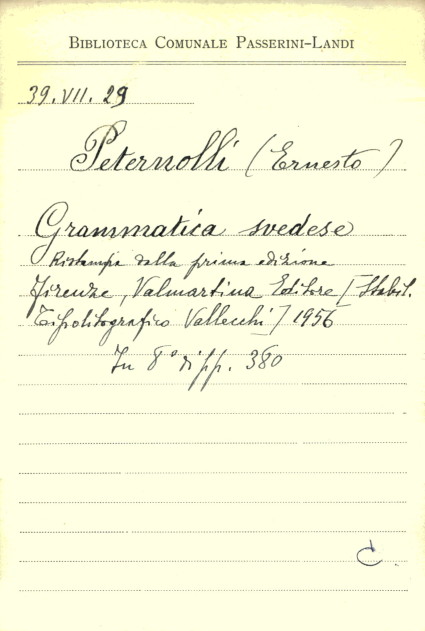 BIBLIOTECA COMUNALE PASSERINI-LANDI
39. VII. 29
Peternolli (Ernesto)
Grammatica svedese
Ristampa dalla prima edizione
Firenze, Valmartina Editore [Stabil.
Tipolitografico Vallecchi] 1956
In 8° di pp. 380
C